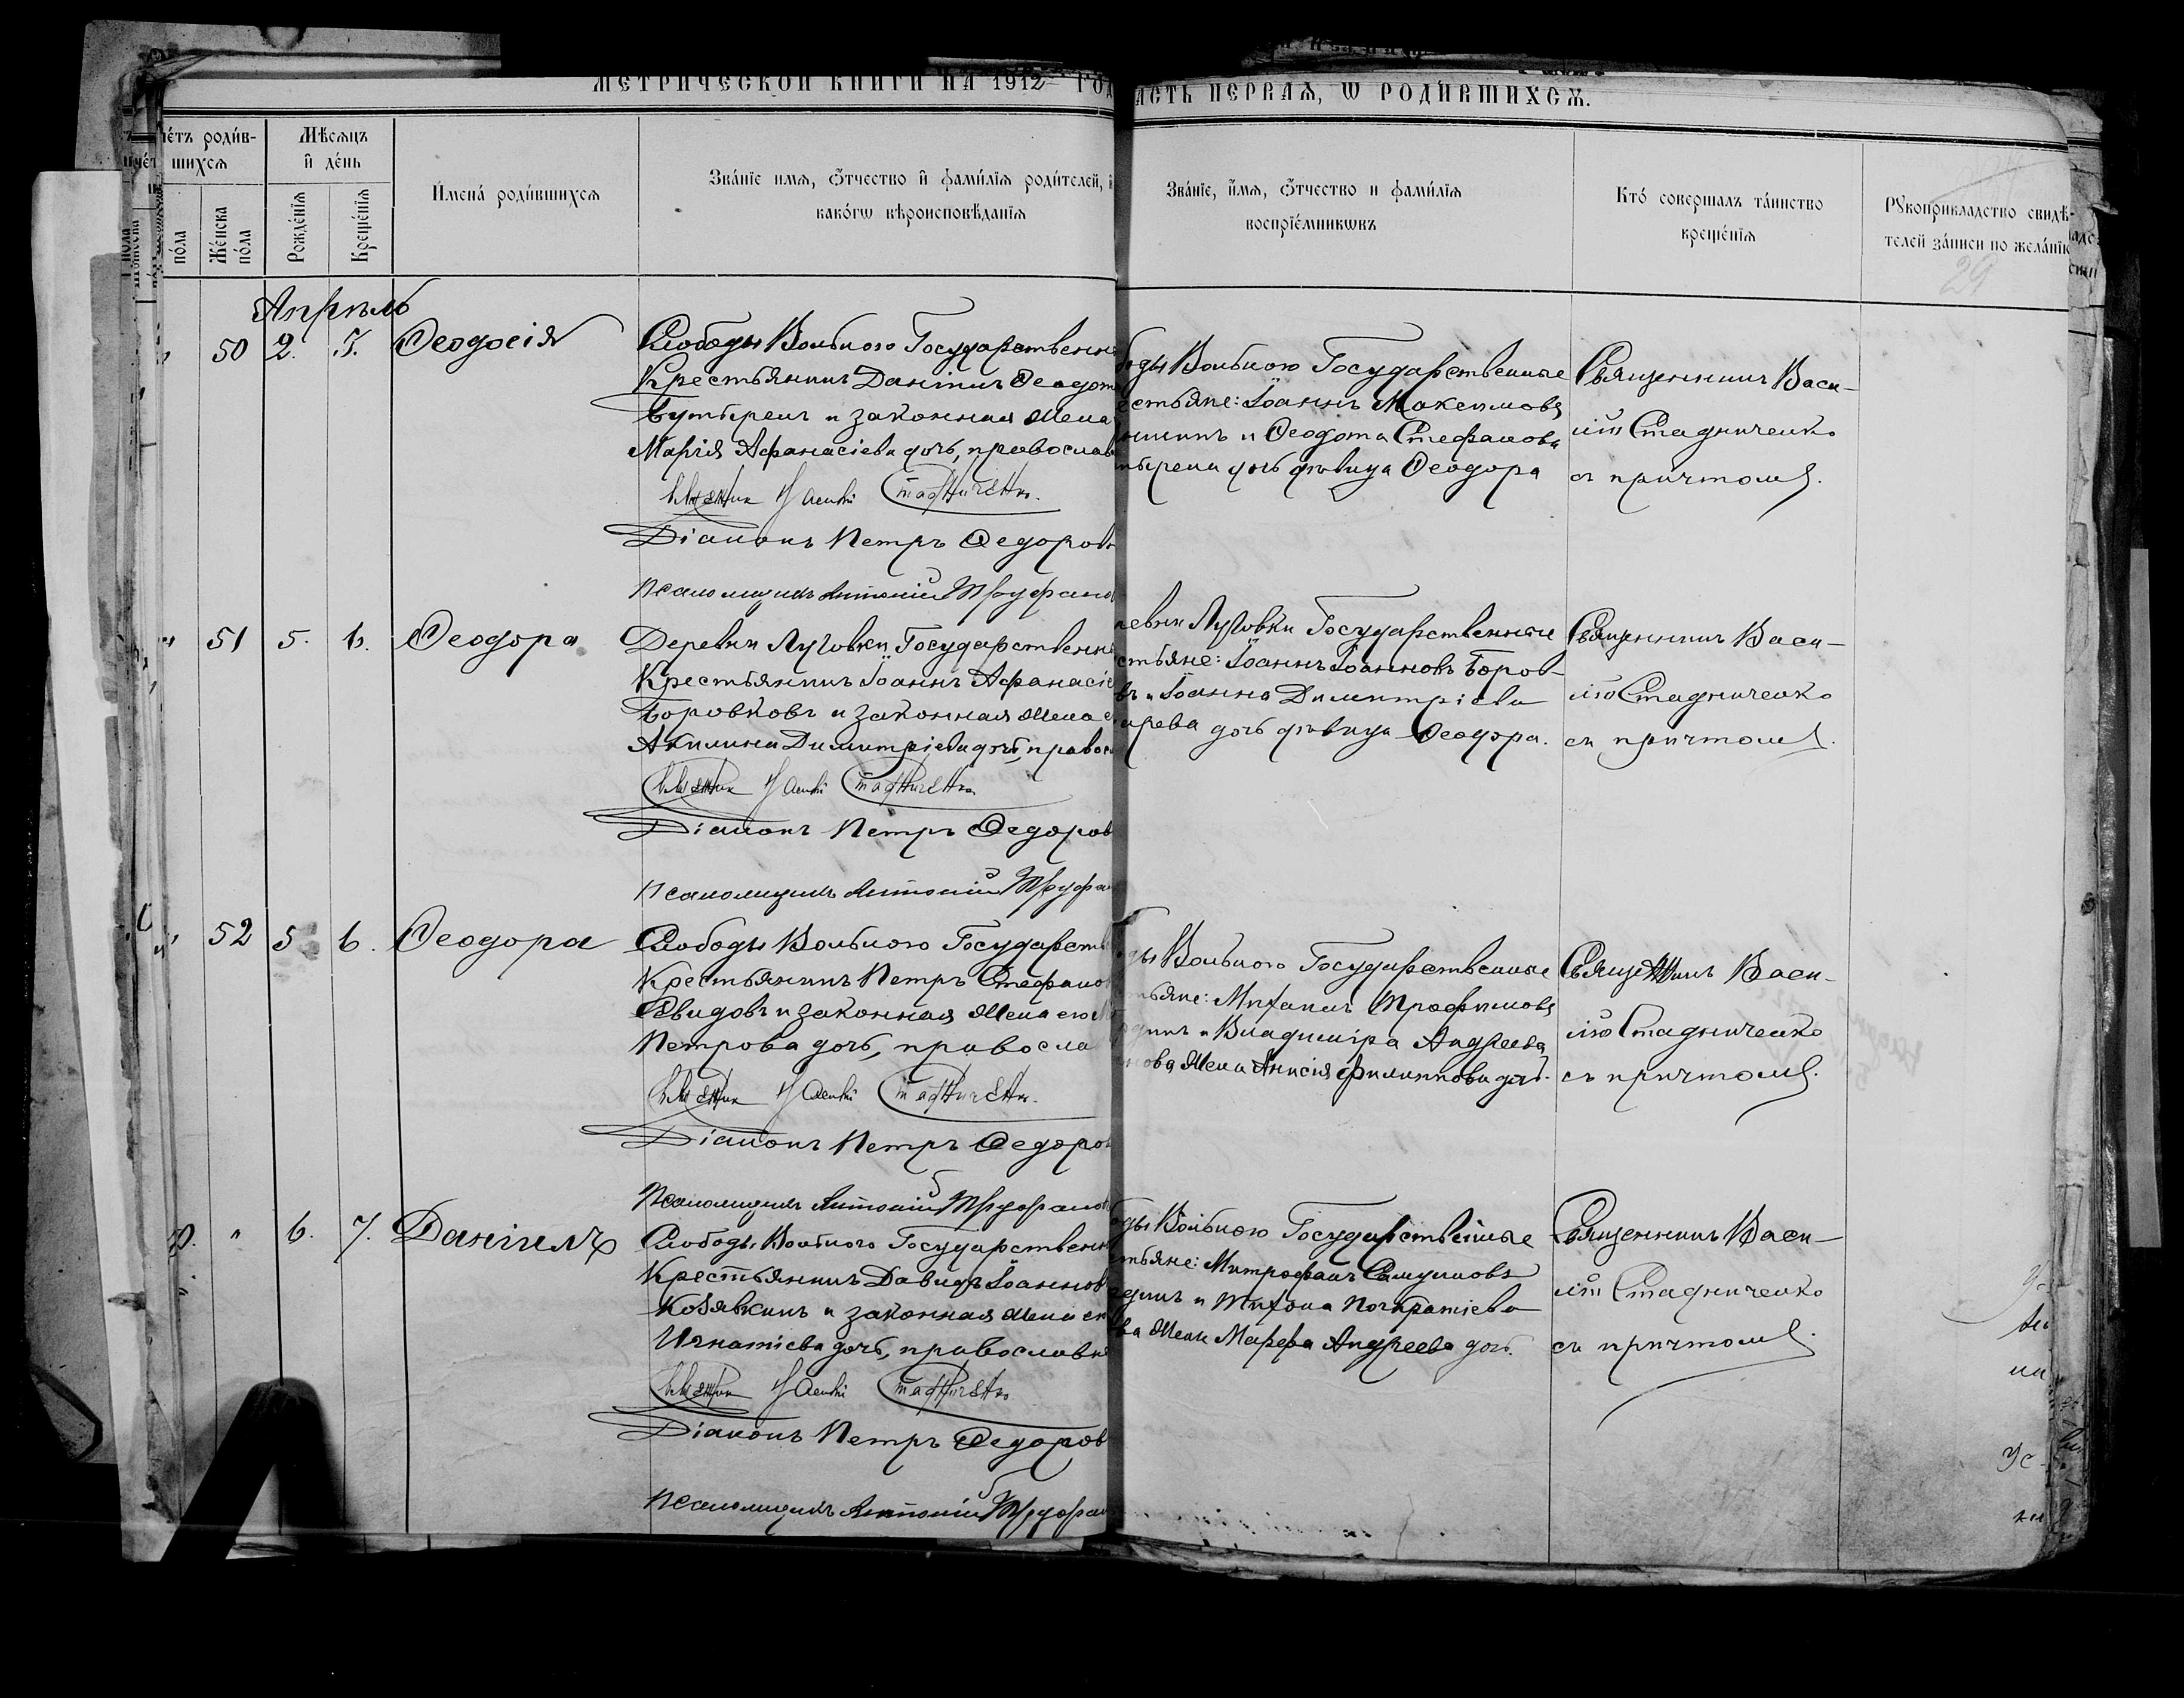 МЕТРИЧЕСКОЙ КНИГИ НА 1912 ГОД
АСТЬ ПЕРВАЯ, Ѡ РОДИ́ВШИХСѦ.
че́тъ роди́в-
шихсѧ
по́ла
Же́нска
по́ла
Мѣсѧцъ
и҆ де́нь
Рожде́нїѧ
Креще́нїѧ
И҆мена́ роди́вшихсѧ
Зва́нїе имѧ, ѻ҆́тчество и҆ фами́лїѧ роди́телей, и҆
како́гѡ вѣроисповѣ́данїѧ
Зва́нїе, и҆́мѧ, ѻ҆́тчество и фами́лїѧ
воспрїе́мникѡвъ
Кто́ соверша́лъ та́инство
креще́нїѧ
Рꙋкоприкладство свидѣ́-
телей за́писи по жела́нїю
29
Апрѣль
50 2. 5. Ѳеодосія
Слободы Вольного Государственн
Крестьянинъ Даніилъ Ѳеодот
Бутыринъ и законная жена
Марія Афанасіева дочь, православ
Священникъ Василій Стадниченко.
Діаконъ Петръ Ѳедоров
Псаломщикъ Антоній Труфано
боды Вольного Государственные
естьяне: Іоаннъ Максимовъ
и Ѳеодота Стефанова
тырева дочь дѣвица Ѳеодора
Священникъ Васи-
лій Стадниченко
съ причтомъ.
51 5. 6. Ѳеодора
Деревни Луговки Государственн
Крестьянинъ Іоаннъ Афанасіе
Боровковъ и законная жена е
Акилина Димитріева дочь, правос
Священникъ Василій Стадниченко
Діаконъ Петръ Ѳедоров
Псаломщикъ Антоній Труфа
ревни Луговки Государственные
стьяне: Іоаннъ Іоанновъ Боров-
въ и Іоанна Димитріева
арева дочь дѣвица Ѳеодора.
Священникъ Васи-
лій Стадниченко
съ причтомъ.
52 5 6. Ѳеодора
Слободы Вольного Государств
Крестьянинъ Петръ Стефано
Свидовъ и законная жена его М
Петрова дочь, правосла
Священникъ Василій Стадниченко.
Діаконъ Петръ Ѳедоро
Псаломщикъ Антоній Труфано
ды Вольного Государственные
тьяне: Михаилъ Трофимовъ
и Владиміра Андреева
нова жена Анисія Филиппова дочь.
Священникъ Васи-
лій Стадниченко
съ причтомъ.
" 6. 7. Даніилъ
Слободы Вольного Государственн
Крестьянинъ Давидъ Іоаннов
Козявкинъ и законная жена ег
Игнатіева дочь, православн
Священникъ Василій Стадниченко
Діаконъ Петръ Ѳедоров
Псаломщикъ Антоній Труфан
оды Вольного Государственные
тьяне: Митрофанъ
и Тихона Панкратіева
ва жена Марфа Андреева дочь.
Священникъ Васи-
лій Стадниченко
съ причтомъ.